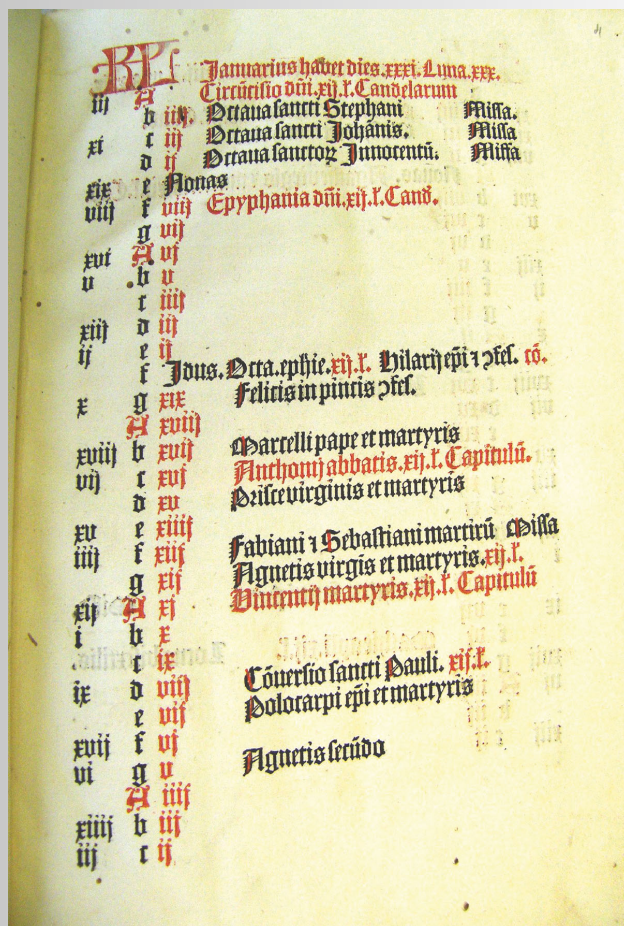 KL Januarius habet dies.xxxi.Luna.xxx.
iij A Circũcisio dñi.xij.ł.Candelarum
b iiij. Octaua sancti Stephani Missa.
xi c iij Octaua sancti Johãnis. Missa
d ij Octaua sanctoꝝ Innocentũ. Missa
xix e Nonas
viij f viij Epyphania dñi.xij.ł.Cand.
g vij
xvi A vj
v b v
c iiij
xiij d iij
ij e ij
f Idus. Octa.ephie.xij.ł. Hilarij ep̃i ⁊ ꝯfes. cõ.
x g xix Felicis in pincis ꝯfes.
A xviij
xviij b xvij Marcelli pape et martyris
vij c xvj Anthonij abbatis.xij.ł.Capitulũ.
d xv Prisce virginis et martyris
xv e xiiij
iiij f xiij Fabiani ⁊ Sebastiani martirũ Missa
g xij Agnetis virgis et martyris.xij.ł.
xij A xj Vincentij martyris.xij.ł.Capitulũ
i b x
c ix
ix d viij Cõuersio sancti Pauli. xij.ł.
e vij Polocarpi ep̃i et martyris
xvij f vj
vi g v Agnetis secũdo
A iiij
xiiij b iij
iij c ij